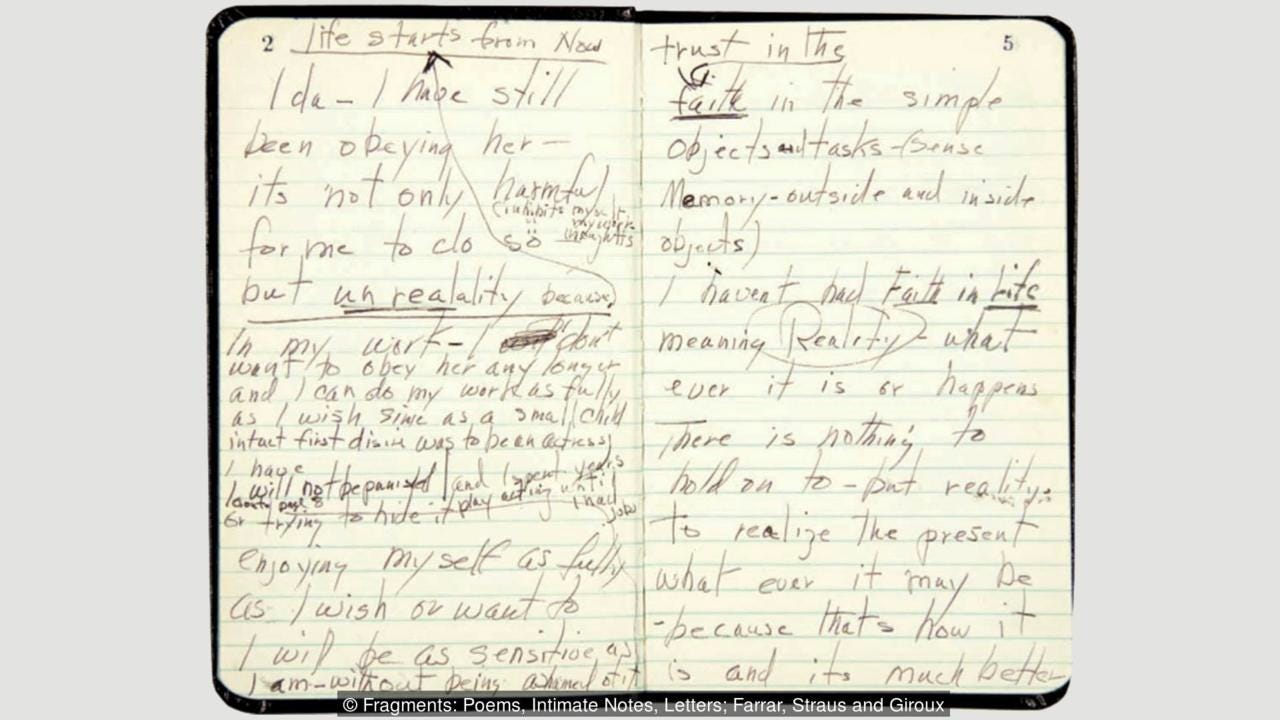 2
life starts from Now
Ida - I have still
been obeying her -
its not only harmful
(inhibits myself
my work
thoughts
for me to do so
but unrealality because
In my work - I don't
want to obey her any longer
and I can do my work as fully
as I wish since as a small child
intact first disire was to be an actress
I have
I will not be punished and I spent years
play acting until
I had
jobs
or trying to hide it
enjoying myself as fully
as I wish or want to
I will be as sensitive as
I am - without being ashamed of it
5
trust in the
faith in the simple
objects and tasks - (sense
Memory - outside and inside
objects)
I havent had Faith in Life
meaning Reality - what
ever it is or happens
There is nothing to
hold on to - but reality
To realize the present
what ever it may be
- because thats how it
is and its much better
© Fragments: Poems, Intimate Notes, Letters; Farrar, Straus and Giroux